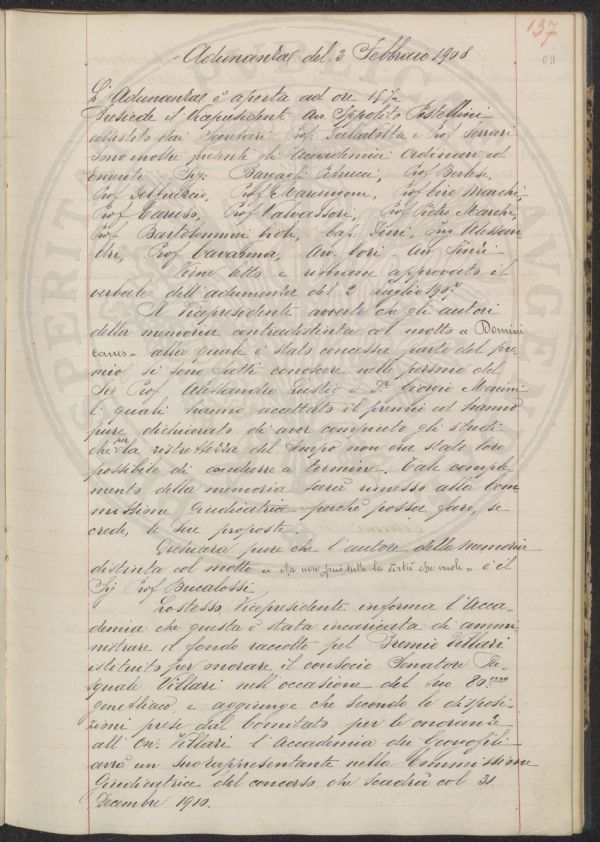 137
Adunanza del 2 Febbraio 1908
L'Adunanza è aperta ad ore 15 ½
Presiede il Vicepresidente Avv. Ippolito Pestellini
assistito dai Segretari Prof. e Prof. Serrari
Sono inoltre presenti gli Accademici Ordinari ed
Emeriti Sigg. Bargagli Petrucci, Prof. Berlese,
Prof. Del Guercio, Prof. Marconi, Prof. Ciro Marchi,
Prof. Caruso, Prof. Valvassori, Prof. Pietro Marchi,
Prof. Bartolommei Gioli, Cap. Sini, Ing. Alessan
dri, Prof. Cavanna, Avv. Cori Avv. Sini
Viene letto e rimane approvato il
verbale dell'adunanza del 2 Luglio 1907
Il Vicepresidente avverte che gli autori
della memoria contradistinta col motto « Domini
canus » alla quale è stato concessa parte del pre
mio, si sono fatti conoscere nelle persone del
Sig. Prof. Alessandro Lustig e Dr Giorgio
i quali hanno accettato il premio ed hanno
pure dichiarato di aver compiuto gli studi
che per la ristrettezza del tempo non era stato loro
possibile di condurre a termine. Tale comple
mento della memoria sarà rimesso alla Com
missione Giudicatrice perchè possa fare, se
crede, le sue proposte.
Dichiara pure che l'autore della memoria
distinta col motto « Ma non può tutto la virtù che vuole » è il
Sig. Prof. Bucalossi
Lo stesso Vicepresidente informa l'Acca-
demia che questa è stata incaricata di ammi
nistrare il fondo raccolto pel Premio Villari
istituito per onorare il consocio Senatore Pa-
squale Villari nell'occasione del suo 80.mo
genetliaco e aggiunge che secondo le disposi-
zioni prese dal Comitato per le onoranze
all'On. Villari l'Accademia dei Georgofili
avrà un suo rappresentante nella Commissione
Giudicatrice del concorso che scadrà col 31
Decembre 1910.